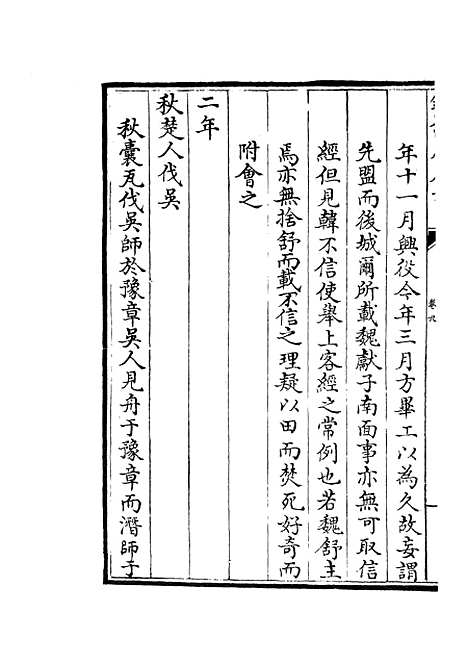 年十一月興役今年三月方畢工以為久故妄謂
先盟而後城爾所載魏獻子南面事亦無可取信
經但見韓不信使舉上客經之常例也若魏舒主
焉亦無捨舒而載不信之理疑以田而焚死好奇而
附會之
二年
秋楚人伐吳
秋囊瓦伐吳師於豫章吳人見舟于豫章而潛師于
卷九